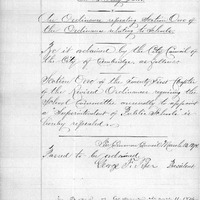 An Ordinance repealing Section One of
the Ordinance relating to Schools.
Be it ordained by the City Council of
the City of Cambridge, as follows:
Section One of the Twenty First Chapter
of the Revised Ordinances requiring the
School Committee annually to appoint
a Superintendent of Public Schools is
hereby repealed.
In Common Council March
Passed to be ordained.
President